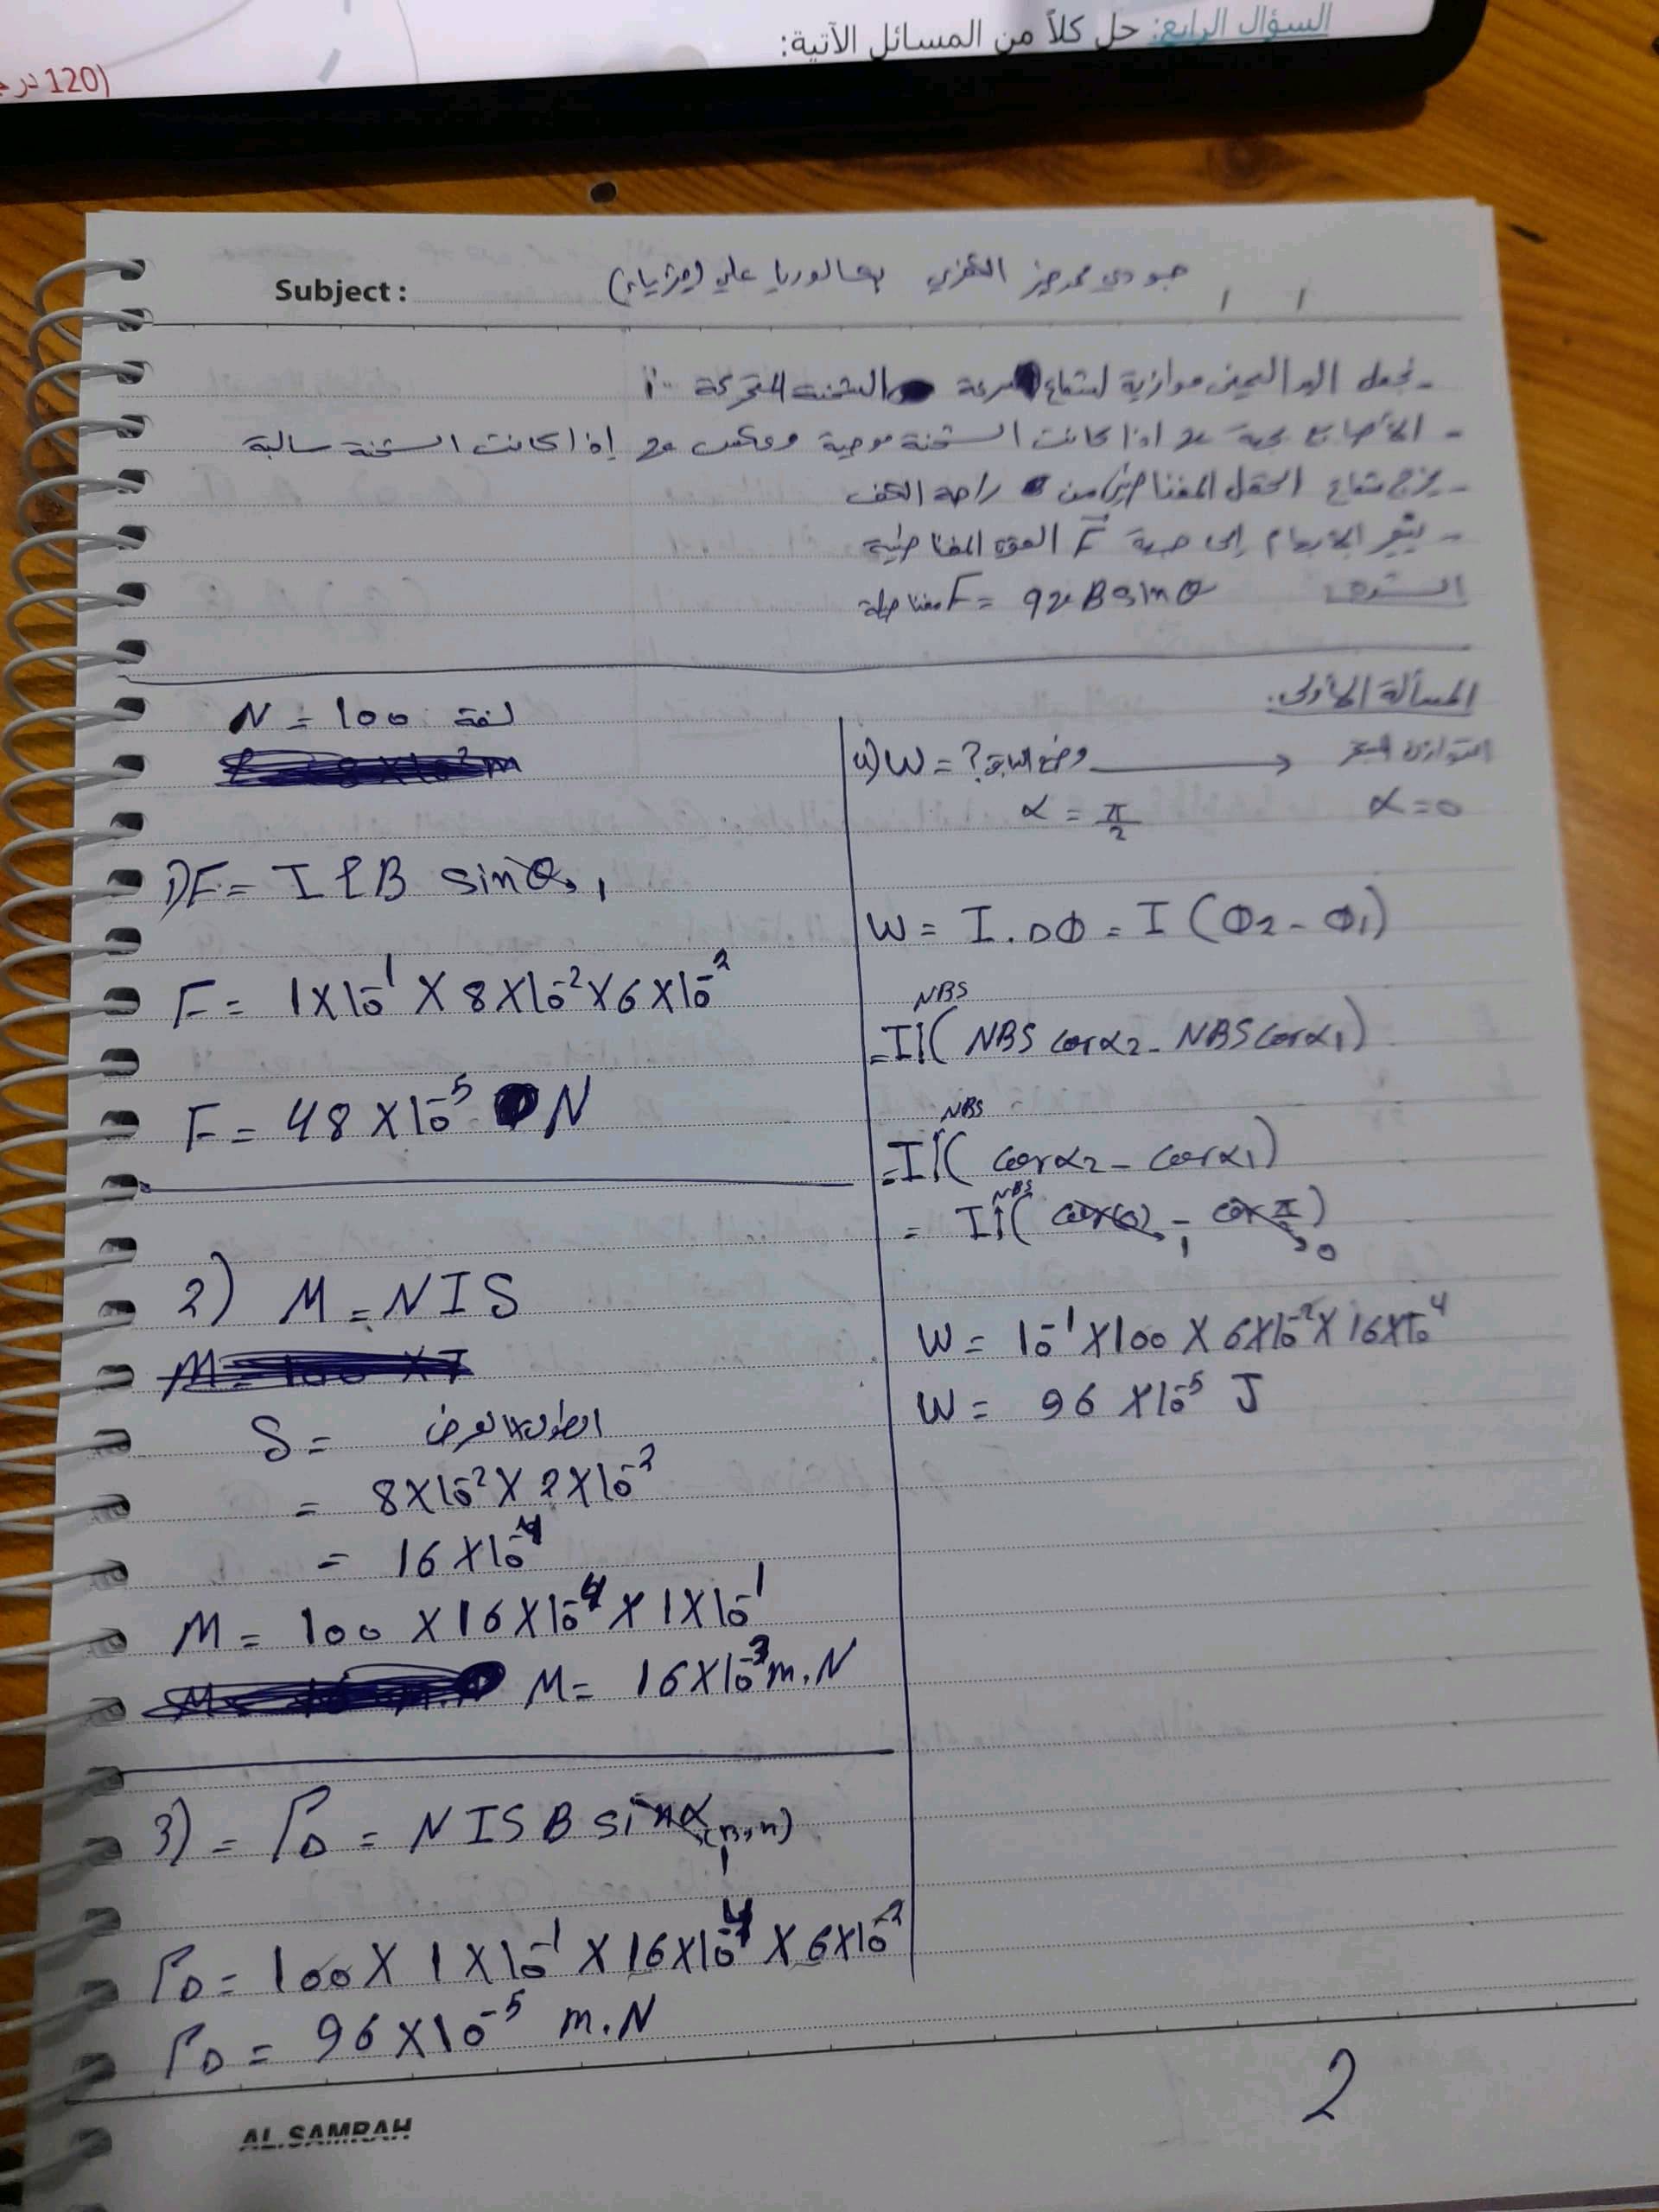 السؤال الرابع: حل كلاً من المسائل الآتية:
(120 در
Subject :
بكالوريا علمي (فيزياء)
- نجعل اليد اليمنى موازية لشعاع سرعة الشحنة المتحركة
- الأصابع بجهة v إذا كانت الشحنة موجبة وعكس v إذا كانت الشحنة سالبة
- يخرج شعاع الحقل المغناطيسي من راحة الكف
- يشير الإبهام إلى جهة F القوة المغناطيسية
الشدة: F مغناطيسية = qvB sinθ
المسألة الأولى:
N = 100 لفة
1) F = I ℓ B sinθ, 1
F = 1 X 10^-1 X 8 X 10^-2 X 6 X 10^-2
F = 48 X 10^-5 N
2) M = N I S
S = الطول X العرض
= 8X10^-2 X 2X10^-2
= 16 X 10^-4
M = 100 X 16 X 10^-4 X 1 X 10^-1
M = 16 X 10^-3 m.N
3) = ΓΔ = N I S B sinα (B,n) 1
ΓΔ = 100 X 1 X 10^-1 X 16 X 10^-4 X 6X10^-2
ΓΔ = 96 X 10^-5 m.N
4) W = ? → التوازن المستقر
α = π/2 α = 0
W = I . ΔΦ = I (Φ2 - Φ1)
= I ( NBS cosα2 - NBS cosα1)
NBS
= I ( cosα2 - cosα1)
NBS
= I ( cos(0) 1 - cos π/2 0 )
NBS
W = 10^-1 X 100 X 6X10^-2 X 16X10^-4
W = 96 X 10^-5 J
2
AL.SAMRAH